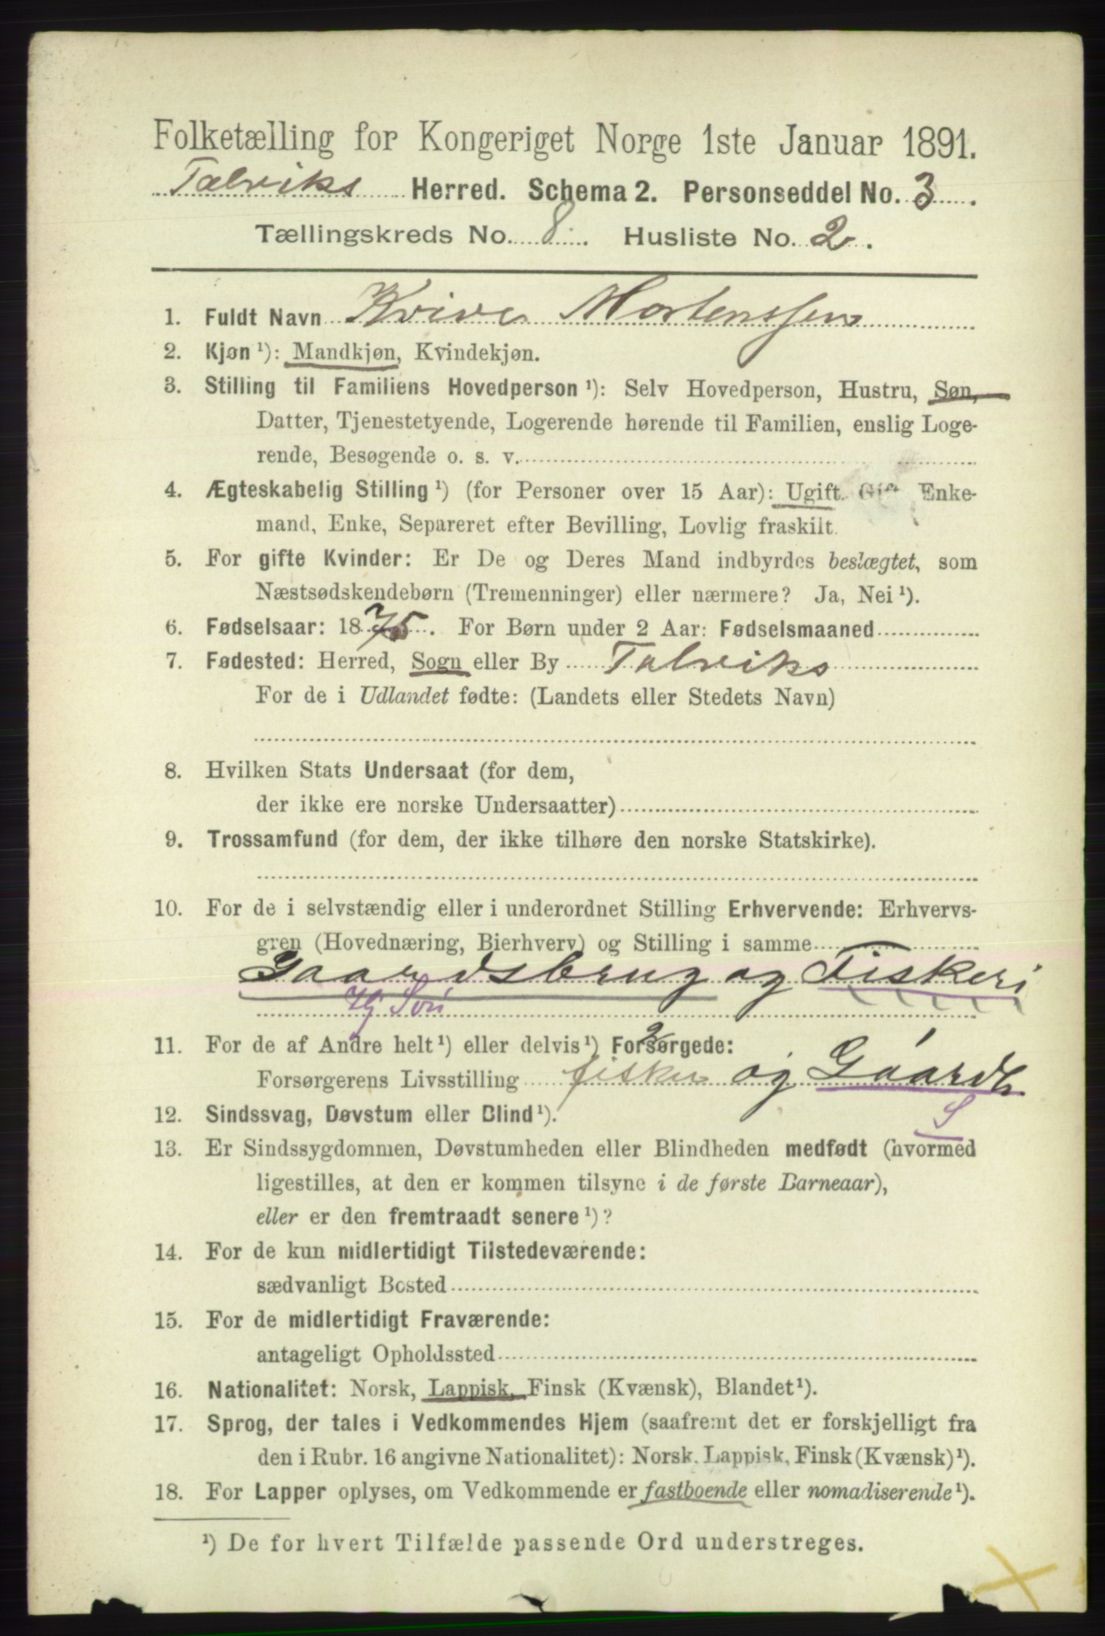 Folketælling for Kongeriget Norge 1ste Januar 1891.
Talviks Herred. Schema 2. Personseddel No. 3.
Tællingskreds No. 8. Husliste No. 2.
1. Fuldt Navn Mortenssen
2. Kjøn ¹): Mandkjøn, Kvindekjøn.
3. Stilling til Familiens Hovedperson ¹): Selv Hovedperson, Hustru, Søn,
Datter, Tjenestetyende, Logerende hørende til Familien, enslig Loge-
rende, Besøgende o. s. v.
4. Ægteskabelig Stilling ¹) (for Personer over 15 Aar): Ugift, Gift, Enke-
mand, Enke, Separeret efter Bevilling, Lovlig fraskilt.
5. For gifte Kvinder: Er De og Deres Mand indbyrdes beslægtet, som
Næstsødskendebørn (Tremenninger) eller nærmere? Ja, Nei ¹).
6. Fødselsaar: 1875. For Børn under 2 Aar: Fødselsmaaned
7. Fødested: Herred, Sogn eller By Talviks
For de i Udlandet fødte: (Landets eller Stedets Navn)
8. Hvilken Stats Undersaat (for dem,
der ikke ere norske Undersaatter)
9. Trossamfund (for dem, der ikke tilhøre den norske Statskirke).
10. For de i selvstændig eller i underordnet Stilling Erhvervende: Erhvervs-
gren (Hovednæring, Bierhverv) og Stilling i samme
Gaardsbrug og Fiskeri
Hg Søn
11. For de af Andre helt ¹) eller delvis ¹) Forsørgede:
2
Forsørgerens Livsstilling fisker og Gaardb
S
12. Sindssvag, Døvstum eller Blind ¹).
13. Er Sindssygdommen, Døvstumheden eller Blindheden medfødt (hvormed
ligestilles, at den er kommen tilsyne i de første Barneaar),
eller er den fremtraadt senere ¹)?
14. For de kun midlertidigt Tilstedeværende:
sædvanligt Bosted
15. For de midlertidigt Fraværende:
antageligt Opholdssted
16. Nationalitet: Norsk, Lappisk, Finsk (Kvænsk), Blandet ¹).
17. Sprog, der tales i Vedkommendes Hjem (saafremt det er forskjelligt fra
den i Rubr. 16 angivne Nationalitet): Norsk, Lappisk, Finsk (Kvænsk) ¹).
18. For Lapper oplyses, om Vedkommende er fastboende eller nomadiserende ¹).
¹) De for hvert Tilfælde passende Ord understreges.